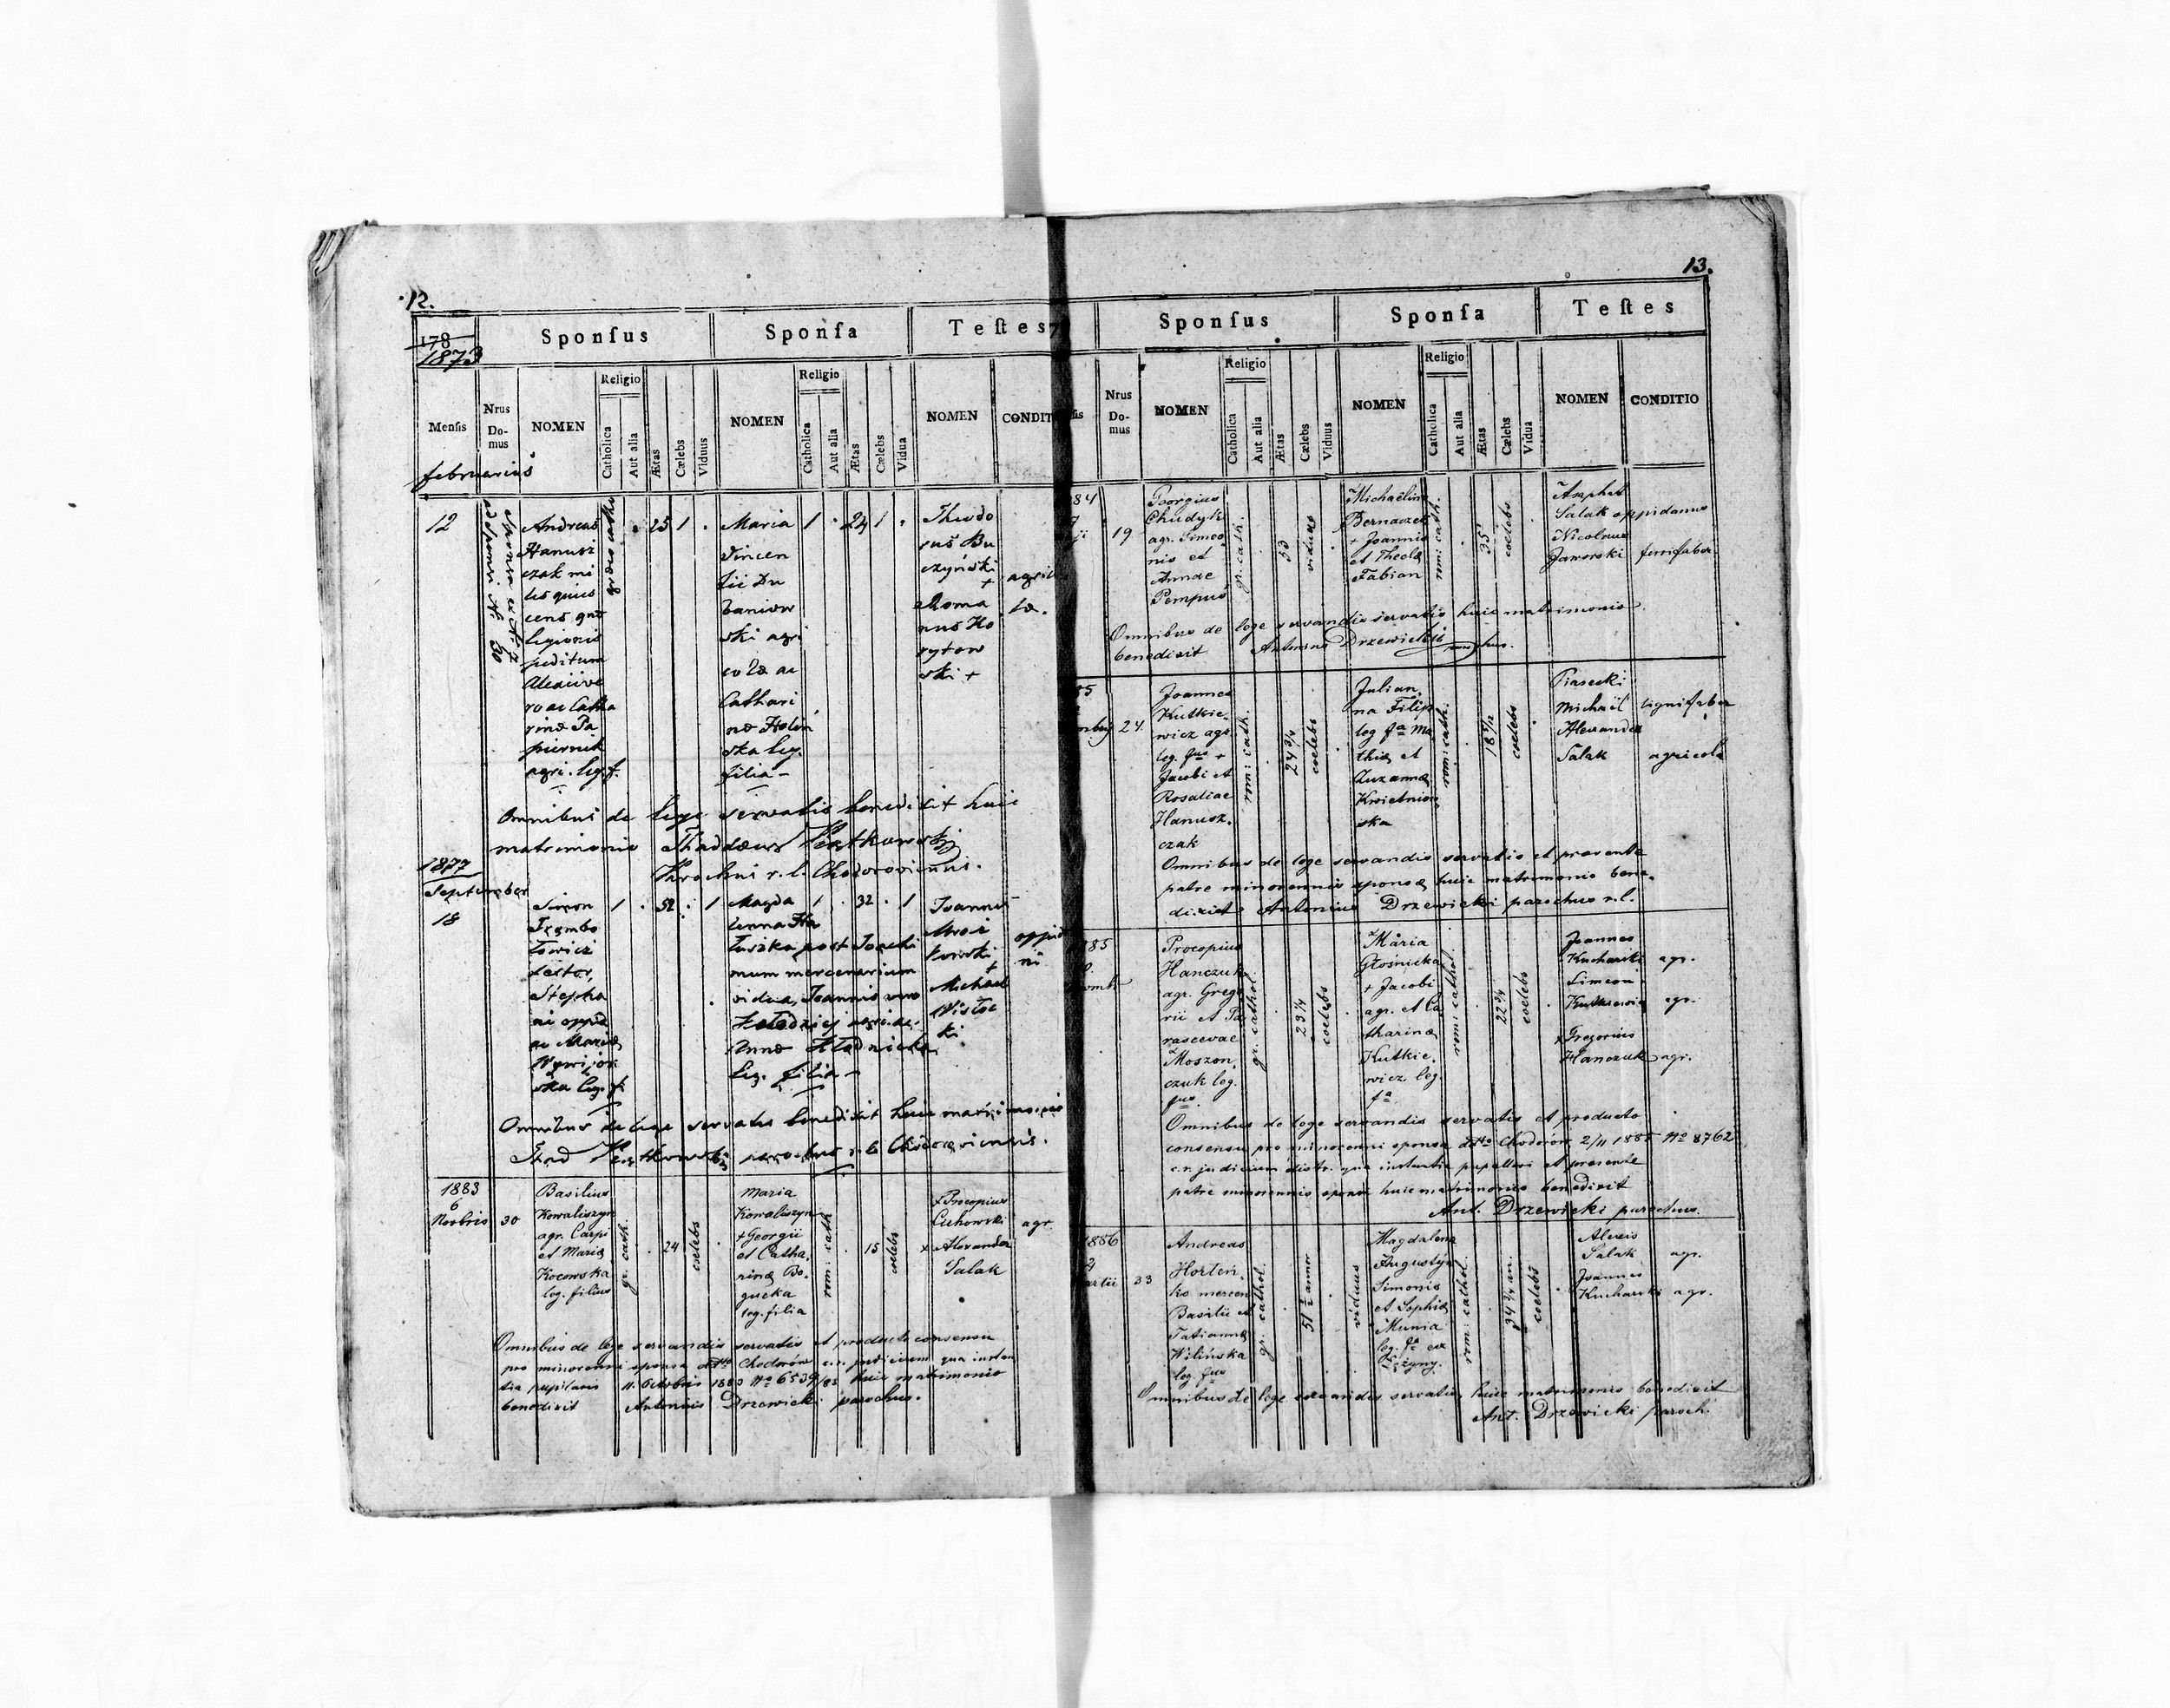 12.
178
1873
Sponſus
Sponſa
Teſtes
Menſis
Nrus Do-mus
NOMEN
Religio
Catholica
Aut alia
Ætas
Cælebs
Viduus
NOMEN
Religio
Catholica
Aut alia
Ætas
Cælebs
Vidua
NOMEN
CONDIT
februarius
12
Andreas
Hanusz
czak mi
les quies
cens
legionis
peditum
ro ac Catha
rinæ Pa
piernik
agri. leg. f.
græco cath
25
1
Maria
Vincen
tii Du
baniow
ski agri
colæ ac
Cathari
næ Holin
ska leg.
filia
1
24
1
Theodo
rus Bu
czynski
+
Roma
nus Ko
rytow
ski +
agrico
læ.
Omnibus de lege servatis benedixit huic
matrimonio Thaddæus
Parochus r. l. Chodoroviensis.
1877
September
18
Simon
Trembo
łowicz
Stepha
ni oppd
ac Mariæ
ska leg. f.
1
52
1
Magda
lenna Ha
łuszka post Joachi
mum mercenarium
vidua, Joannis
agri. ac
Annæ
leg. filia
1
32
1
Joannes
Mroz
kowski
+
Michael
Wisłoc
ki
oppida
ni
Omnibus de lege servatis benedixit huic matrimonio
parochus r. l. Chodoroviensis.
1883
6
Novbris
30
Basilius
Kowaliszyn
agr. Carpi
et Mariæ
Kocowska
leg. filius
gr. cath.
24
coelebs
Maria
Kowaliszyn
+ Georgii
et Catha.
rinæ Bo.
gucka
leg. filia
rom: cath
15
coelebs
+ Procopius
Cichowski
+ Alexander
Salak
agr.
Omnibus de lege servandis servatis et producto consensu
pro minorenni sponsa ddto Chodorów c.r. judicium qua instan
tia pupilaris 11. Octobris 1883 No 6539/83 huic matrimonio
benedixit Antonius Drzewicki parochus.
13.
Sponſus
Sponſa
Teſtes
Nrus Do-mus
NOMEN
Religio
Catholica
Aut alia
Ætas
Cælebs
Viduus
NOMEN
Religio
Catholica
Aut alia
Ætas
Cælebs
Vidua
NOMEN
CONDITIO
84
19
Georgius
Chudyk
agr. Simeo
nis et
Annae
Pempus
gr. cath.
53
viduus
Michaëlina
Bernaczek
+ Joannis
et Theclæ
Fabian
rom: cath.
35
coelebs
Salak oppidanus
Nicolaus
Jaworski ferrifaber
Omnibus de lege servandis servatis huic matrimonio
benedixit Antonius Drzewicki parochus.
85
24
Joannes
Kutkie-
wicz agr.
leg. fus +
Jacobi et
Rosaliae
Hanusz.
czak
rom: cath.
24 3/4
coelebs
Julian.
na Filip
leg fa Ma
thiæ et
Zuzannæ
Kwietniow
ska
rom: cath.
18 5/12
coelebs
Piasecki
Michaël lignifaber
Alexander
Salak agricola
Omnibus de lege servandis servatis et praesente
patre minorennis sponsæ huic matrimonio bene.
dixit Antonius Drzewicki parochus r.l.
85
Procopius
Hanczuk
agr. Grego
rii et Pa
rascevae
Moszon.
czuk leg.
fus
gr. cathol.
23 1/4
coelebs
Maria
Głośnicka
+ Jacobi
agr. et Ca
tharinæ
Kutkie.
wicz leg.
fa
rom: cathol.
22 3/4
coelebs
Joannes
Kucharski agr.
Simeon
Kutkiewicz agr.
+ Gregorius
Hanczuk agr.
Omnibus de lege servandis servatis et producto
consensu pro minorenni sponsa ddto Chodorów 2/11 1885 No 8762
c.r. judicium distr. qua instantia pupillari et presente
patre minorennis sponsi huic matrimonio benedixit
Ant. Drzewicki parochus.
1886
artii
33
Andreas
Horten.
ko mercen
Basilii et
Tatiannæ
Wilińska
leg. fus
gr. cathol.
51 1/2 annor
viduus
Magdalena
Augustyn
Simonis
et Sophiæ
Munia
leg. fa ex
rom: cathol.
34 3/4 an.
coelebs
Alexis
Salak agr.
Joannes
Kucharski agr.
Omnibus de lege servandis servatis huic matrimonio benedixit
Ant. Drzewicki paroch.